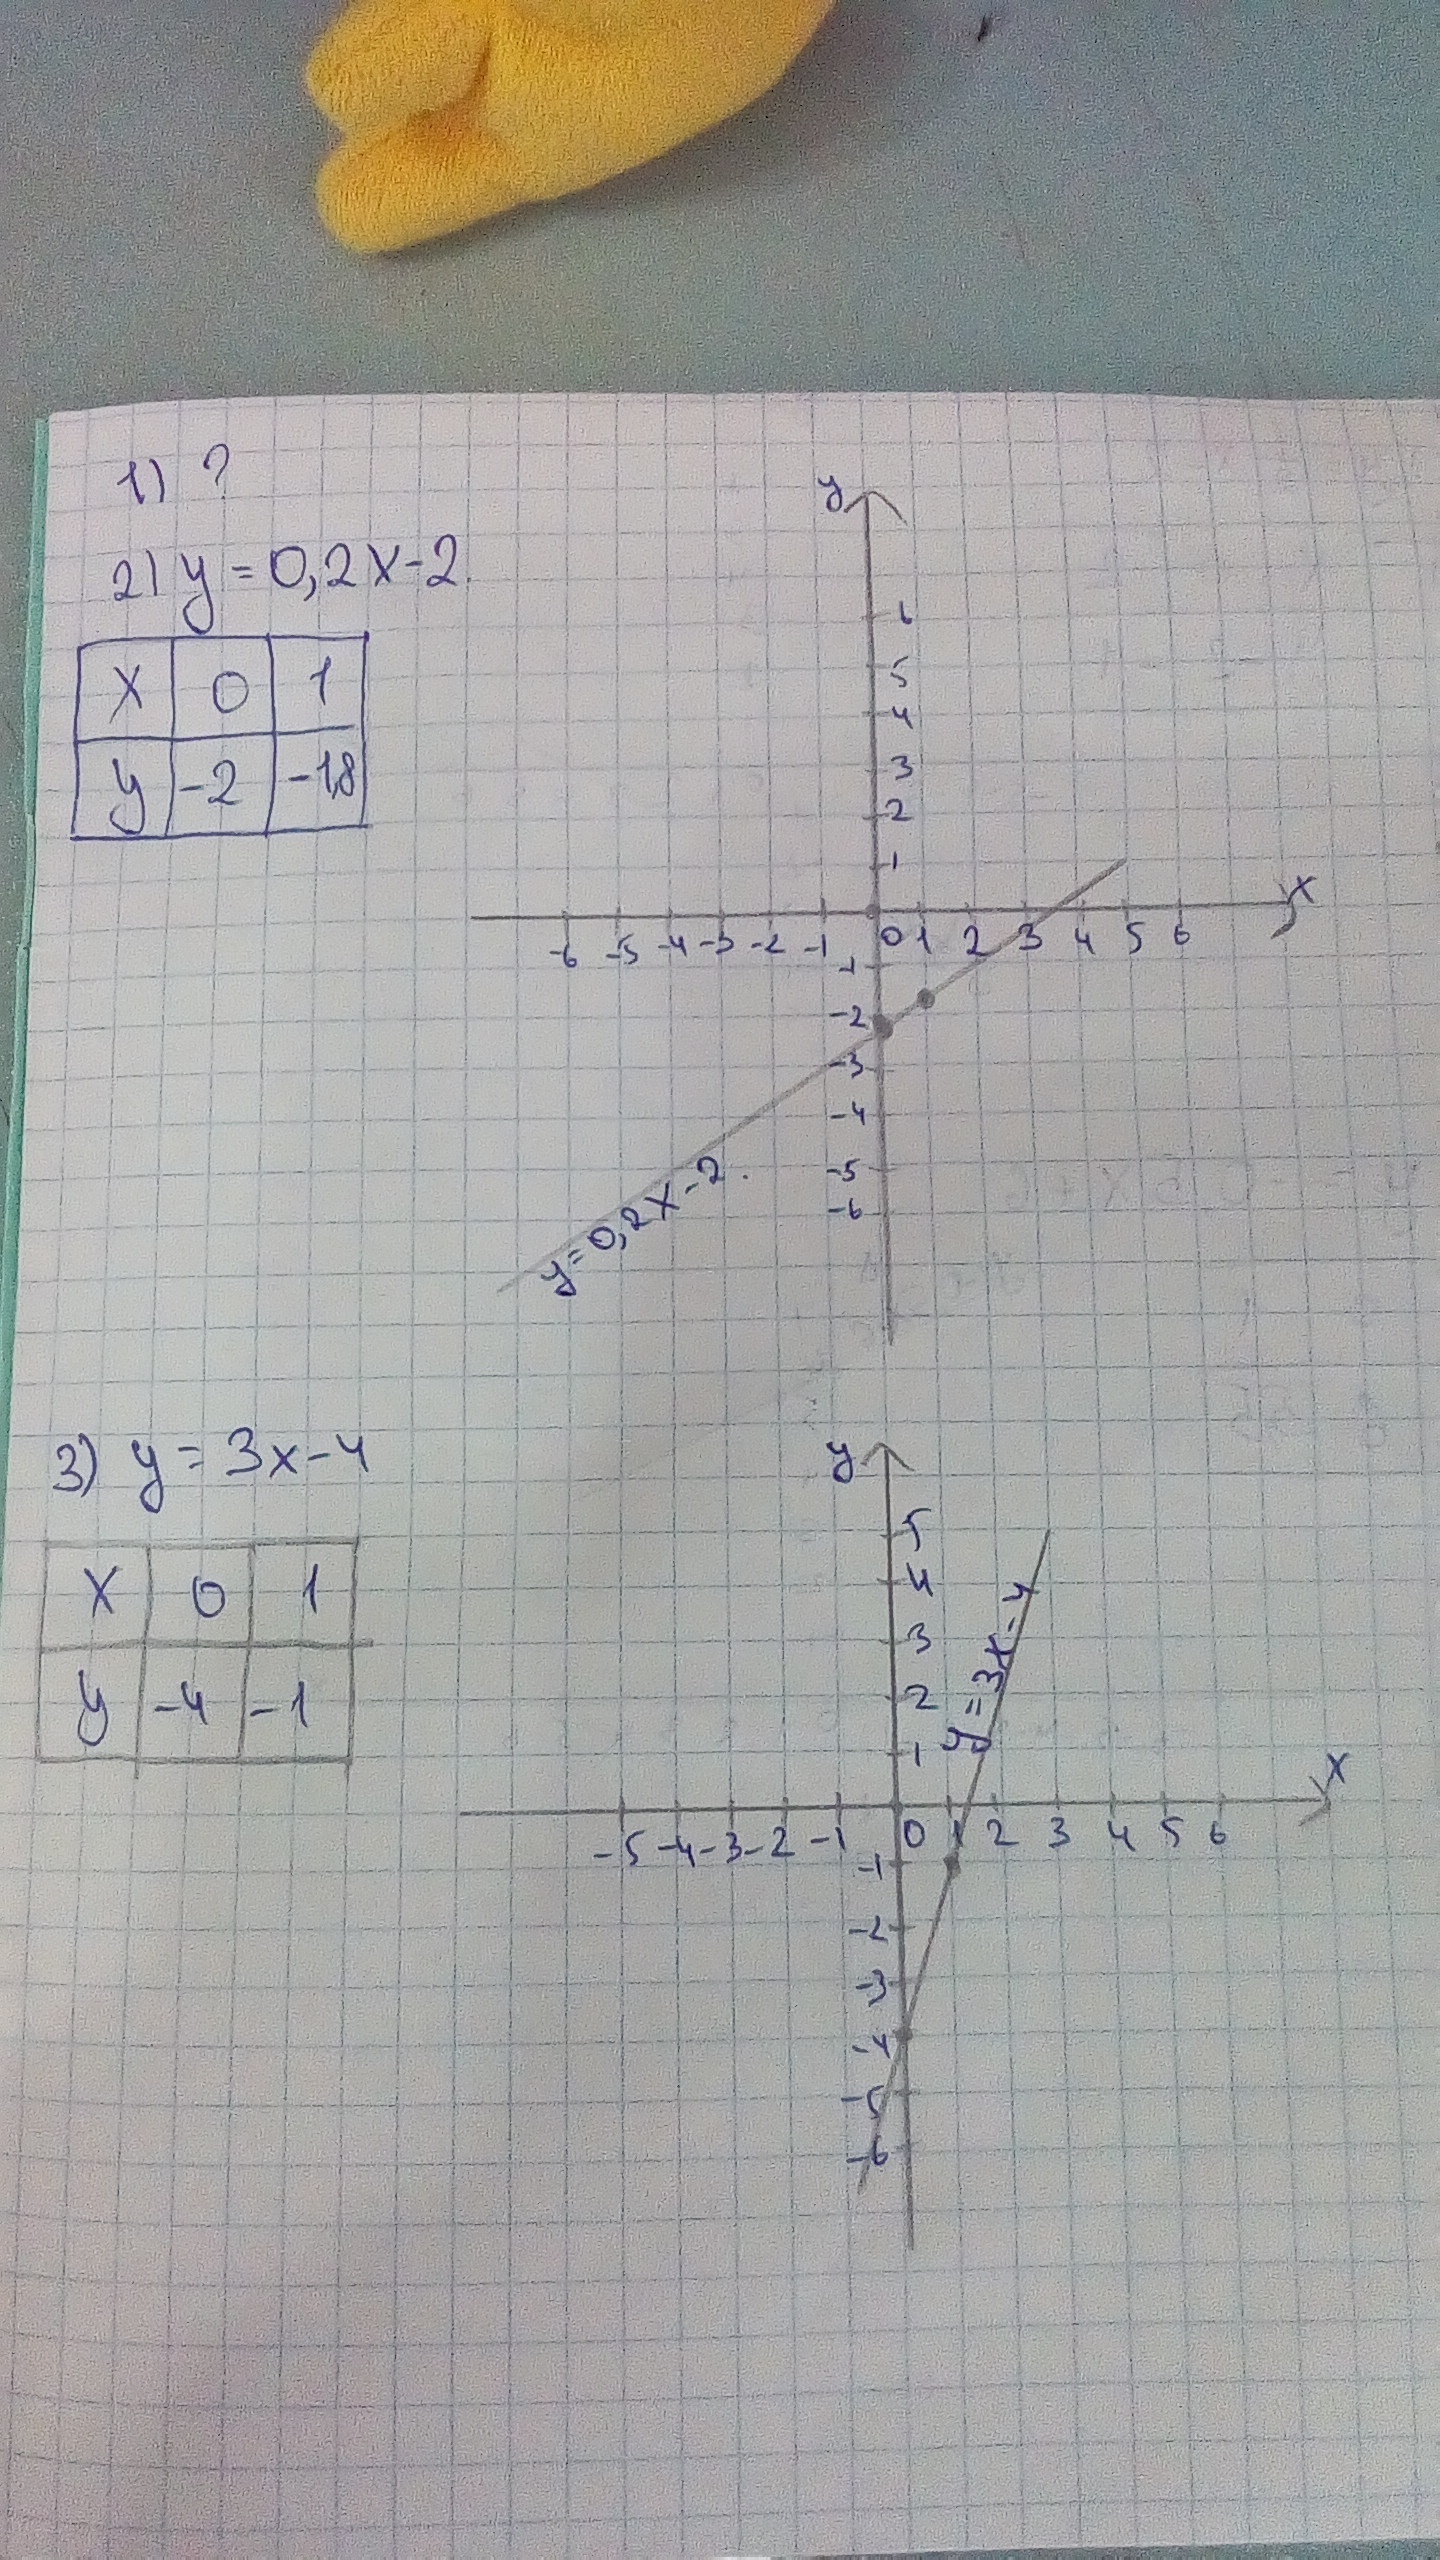 1) ?
2) y = 0,2x-2.
x 0 1
y -2 -1,8
y
6
5
4
3
2
1
x
-6 -5 -4 -3 -2 -1 0 1 2 3 4 5 6
-1
-2
-3
-4
-5
-6
y=0,2x-2.
3) y = 3x-4
x 0 1
y -4 -1
y
5
4
3
2
1
y=3x-4
x
-5 -4 -3 -2 -1 0 1 2 3 4 5 6
-1
-2
-3
-4
-5
-6